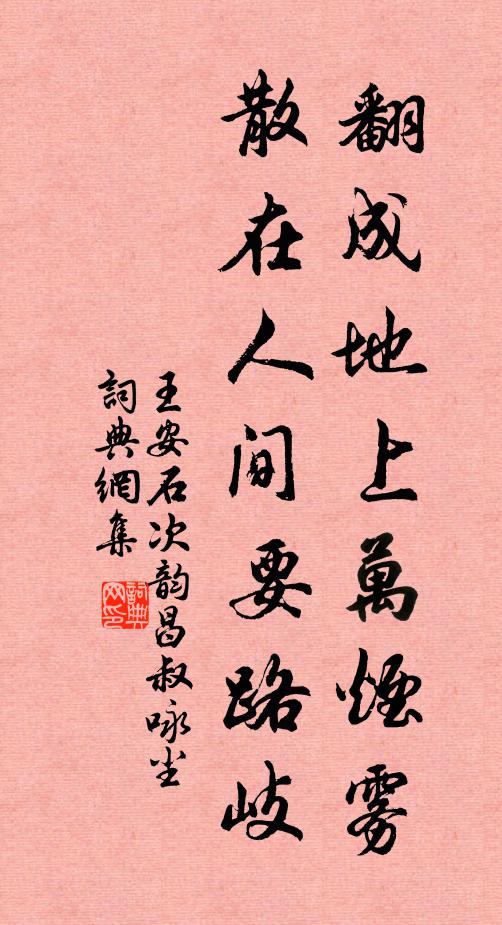 翻成地上萬煙雾
散在人間要路岐
王安石次韵昌叔咏尘
詞典網集
詞典网印